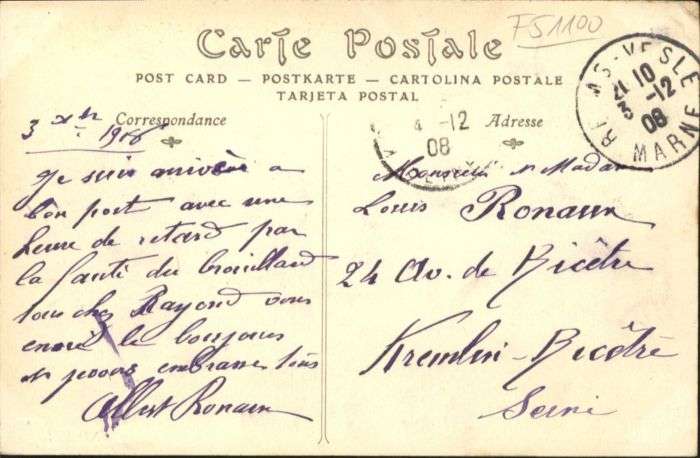 F51100
Carte Postale
POST CARD — POSTKARTE — CARTOLINA POSTALE
TARJETA POSTAL
Correspondance
3 Xbre 1908
Je suis arrivé a
bon port avec une
heure de retard par
la fauti du brouillard
tous chez Rayond vous
envoi le bonjour
et vous embrasse tous
Albert Ronaux
Adresse
REIMS-VESLE
21 10
3 -12
08
MARNE
4 -12
08
Monsieur et Madame
Louis Ronaux
24 Av. de Bicêtre
Kremlin-Bicêtre
Seine